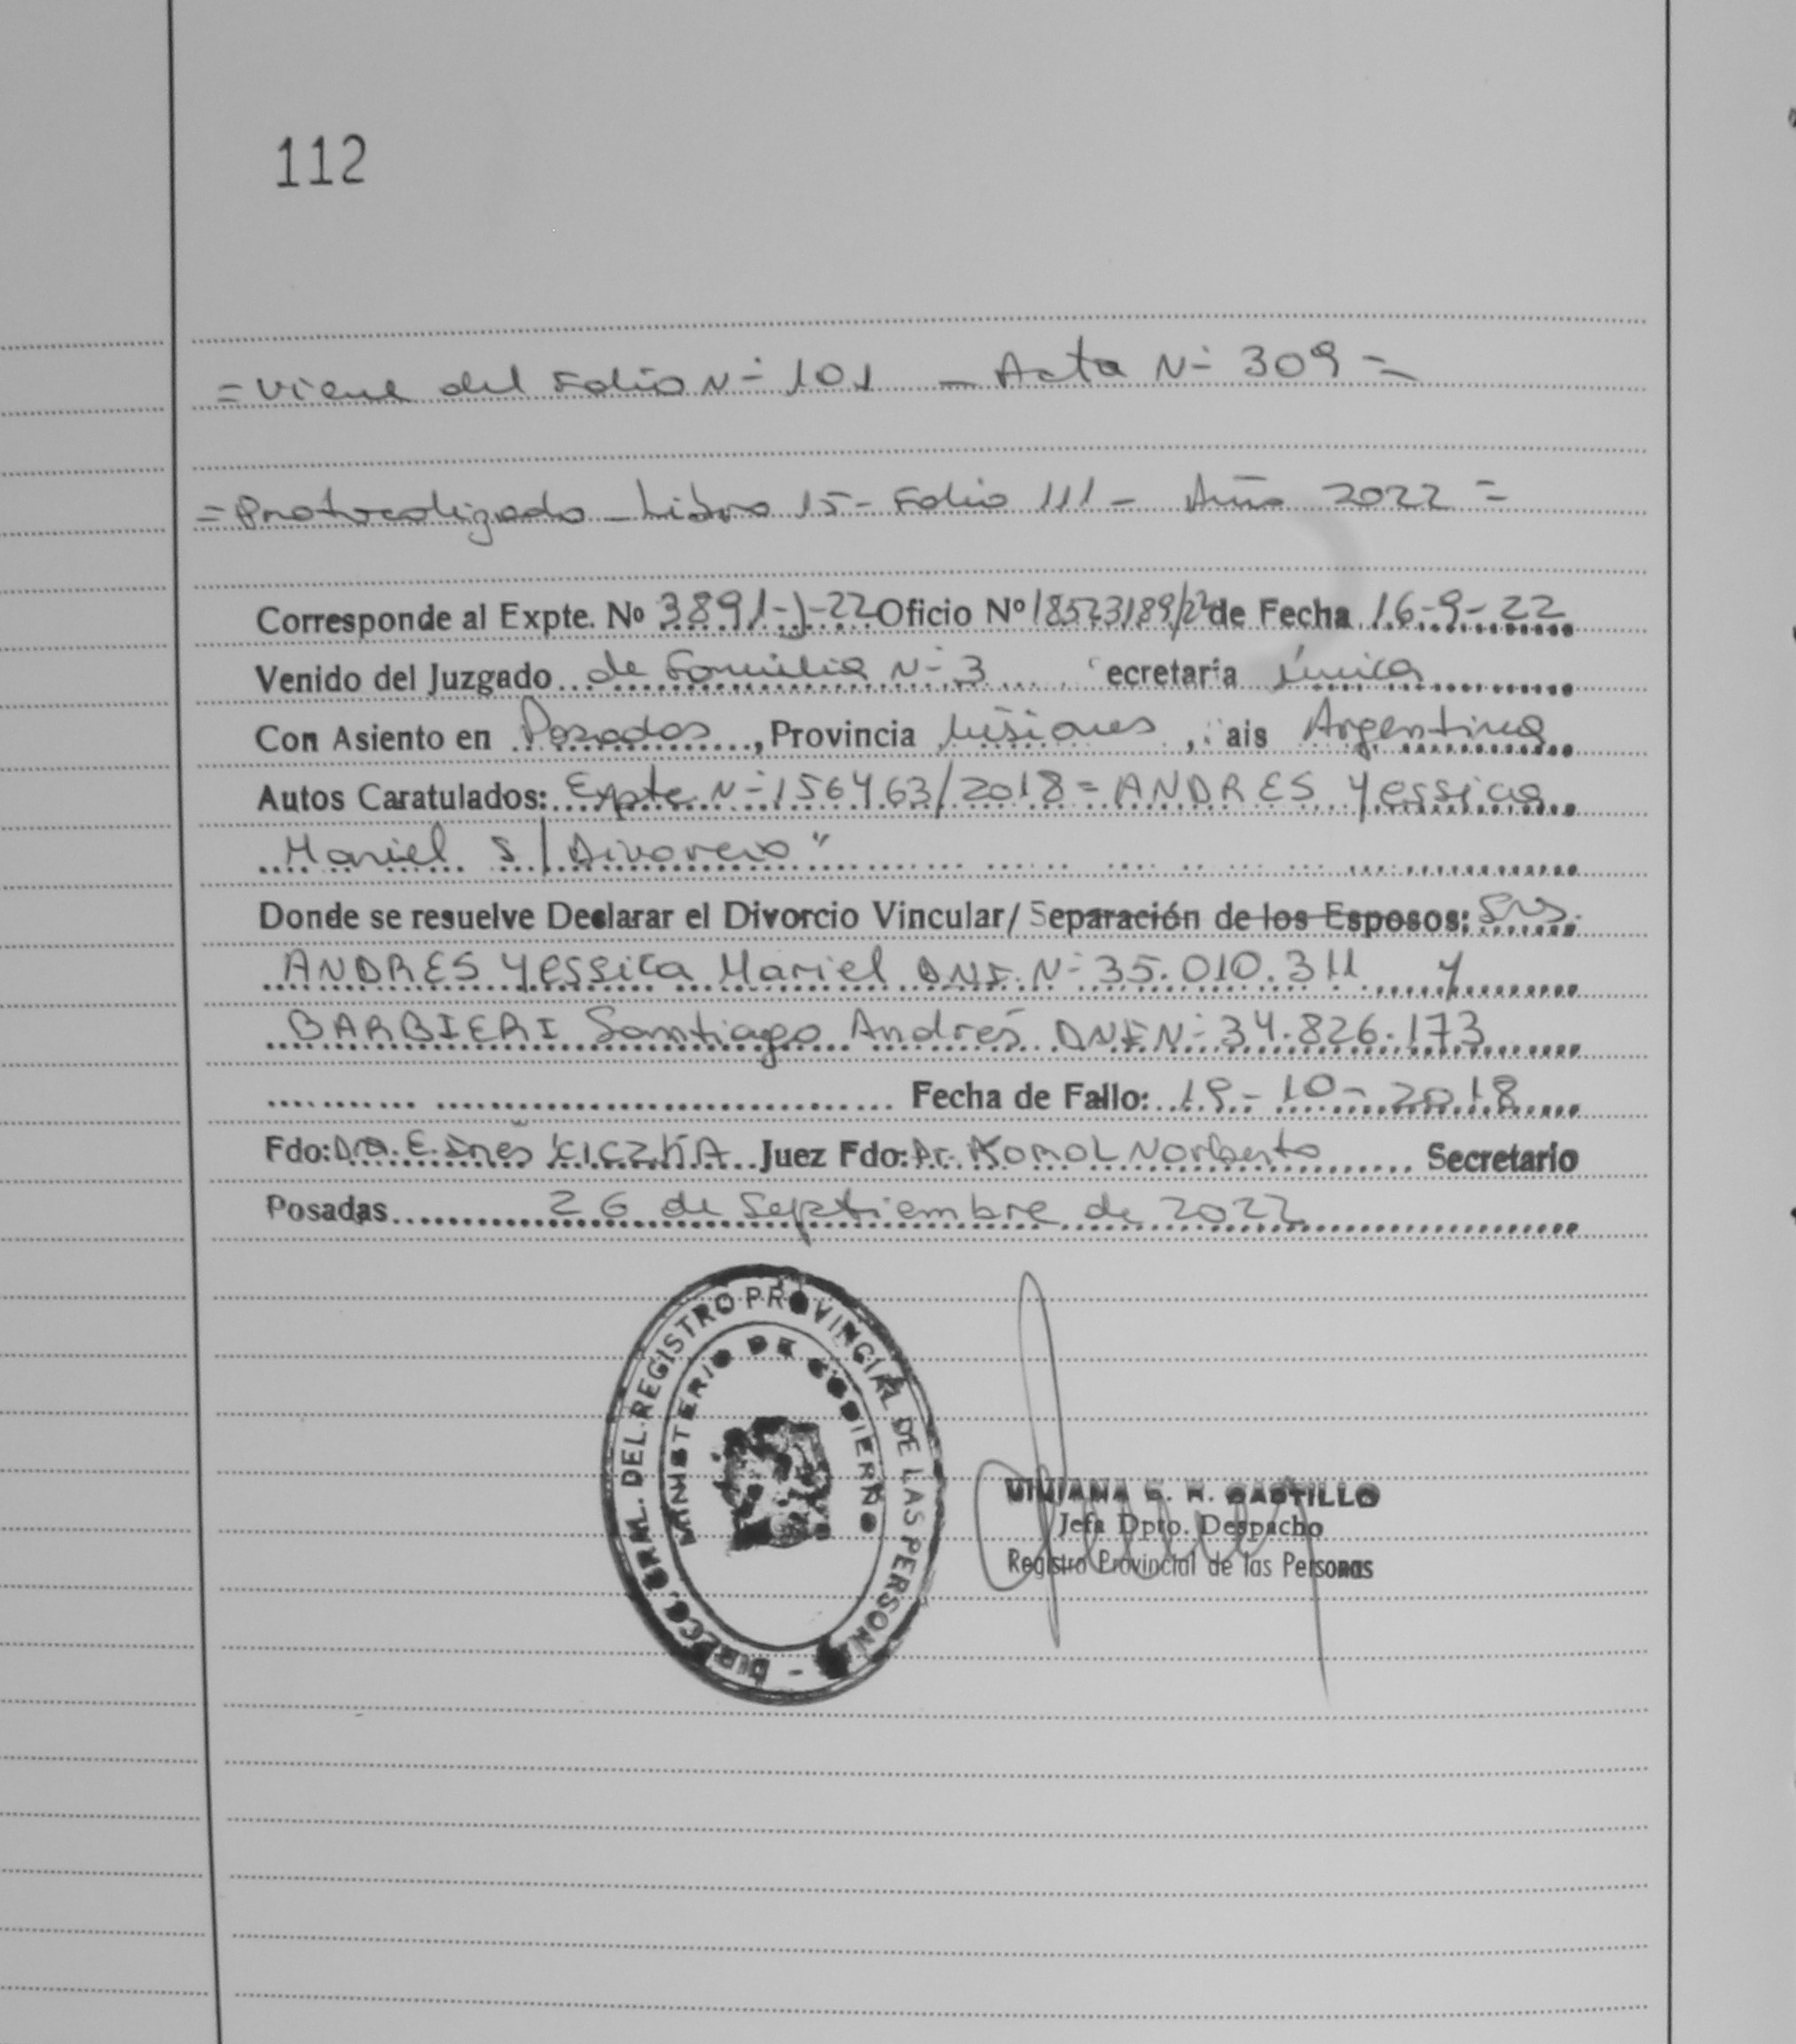 112
= Viene del Folio Nº 101 - Acta Nº 309 =
= Protocolizado - Libro 15 - Folio 111 - Año 2022 =
Corresponde al Expte. Nº 3891-J-22 Oficio Nº 18523189/22 de Fecha 16-9-22
Venido del Juzgado de Familia Nº 3 ecretaría Única
Con Asiento en Posadas, Provincia Misiones, ais Argentina
Autos Caratulados: Expte Nº 156463/2018 = ANDRES Yessica
Mariel S/Divorcio"
Donde se resuelve Declarar el Divorcio Vincular/ Separación de los Esposos: Srs.
ANDRES Yessica Mariel DNI. Nº 35.010.311 y
BARBIERI Santiago Andrés DNI Nº 34.826.173
Fecha de Fallo: 19-10-2018
Fdo: Dra. E. Inés KICZKA Juez Fdo: Dr. KOROL Norberto Secretario
Posadas 26 de Septiembre de 2022
DIRECC. GRAL. DEL REGISTRO PROVINCIAL DE LAS PERSONAS -
MINISTERIO DE GOBIERNO
VIVIANA G. R. CASTILLO
Jefa Dpto. Despacho
Registro Provincial de las Personas